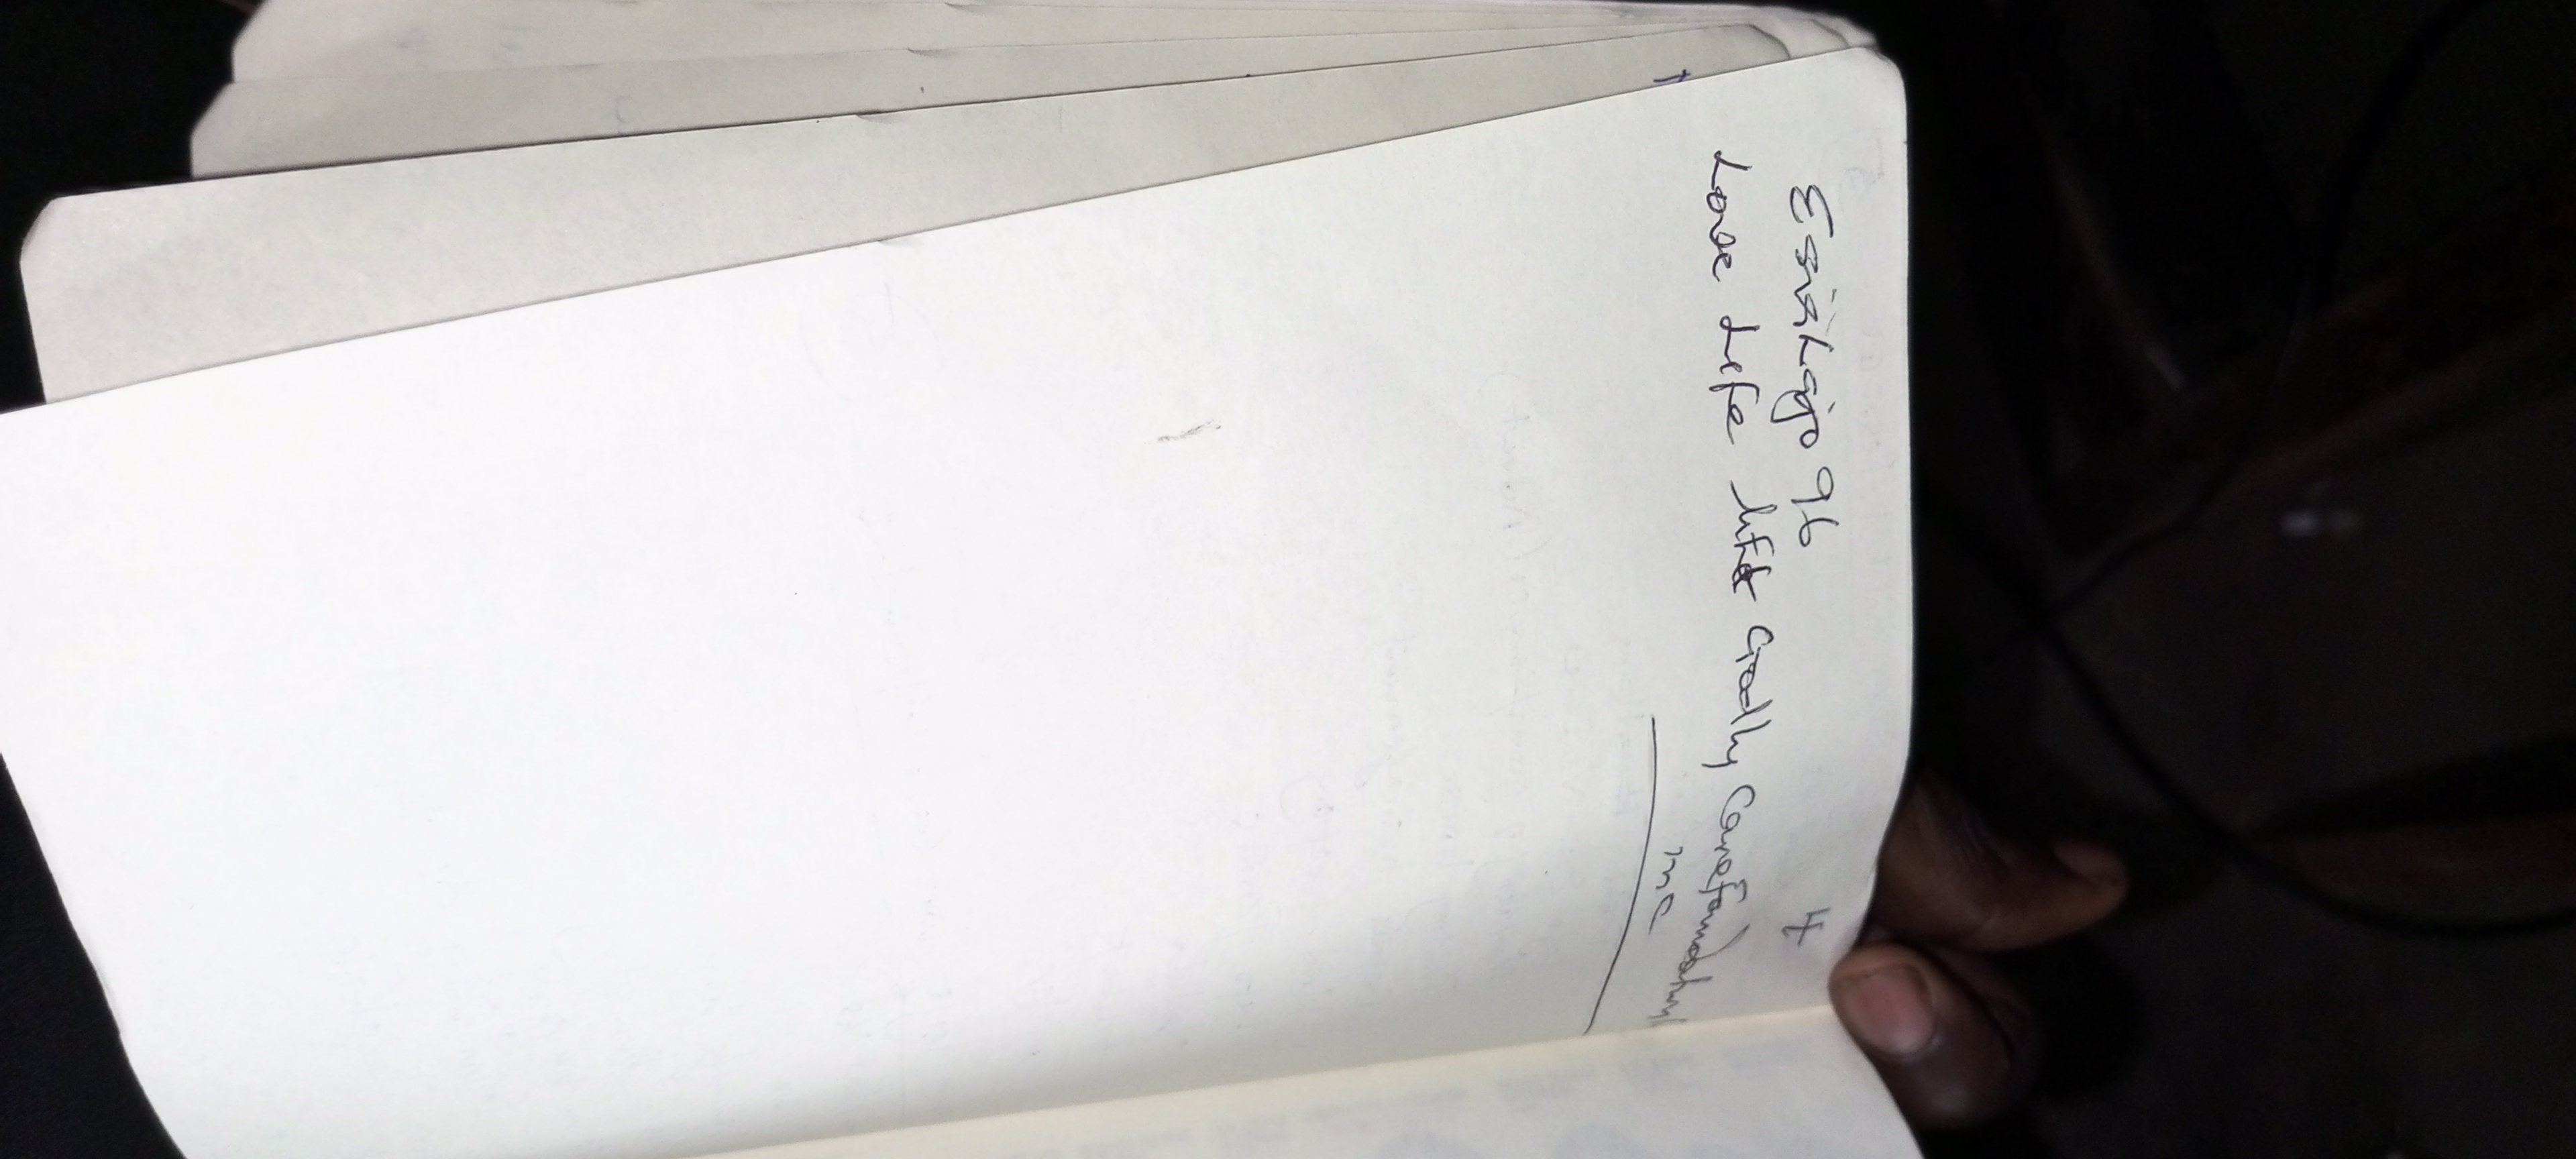 Esinlagjo 96
4
Love Life lift Godly Carefoundation
inc